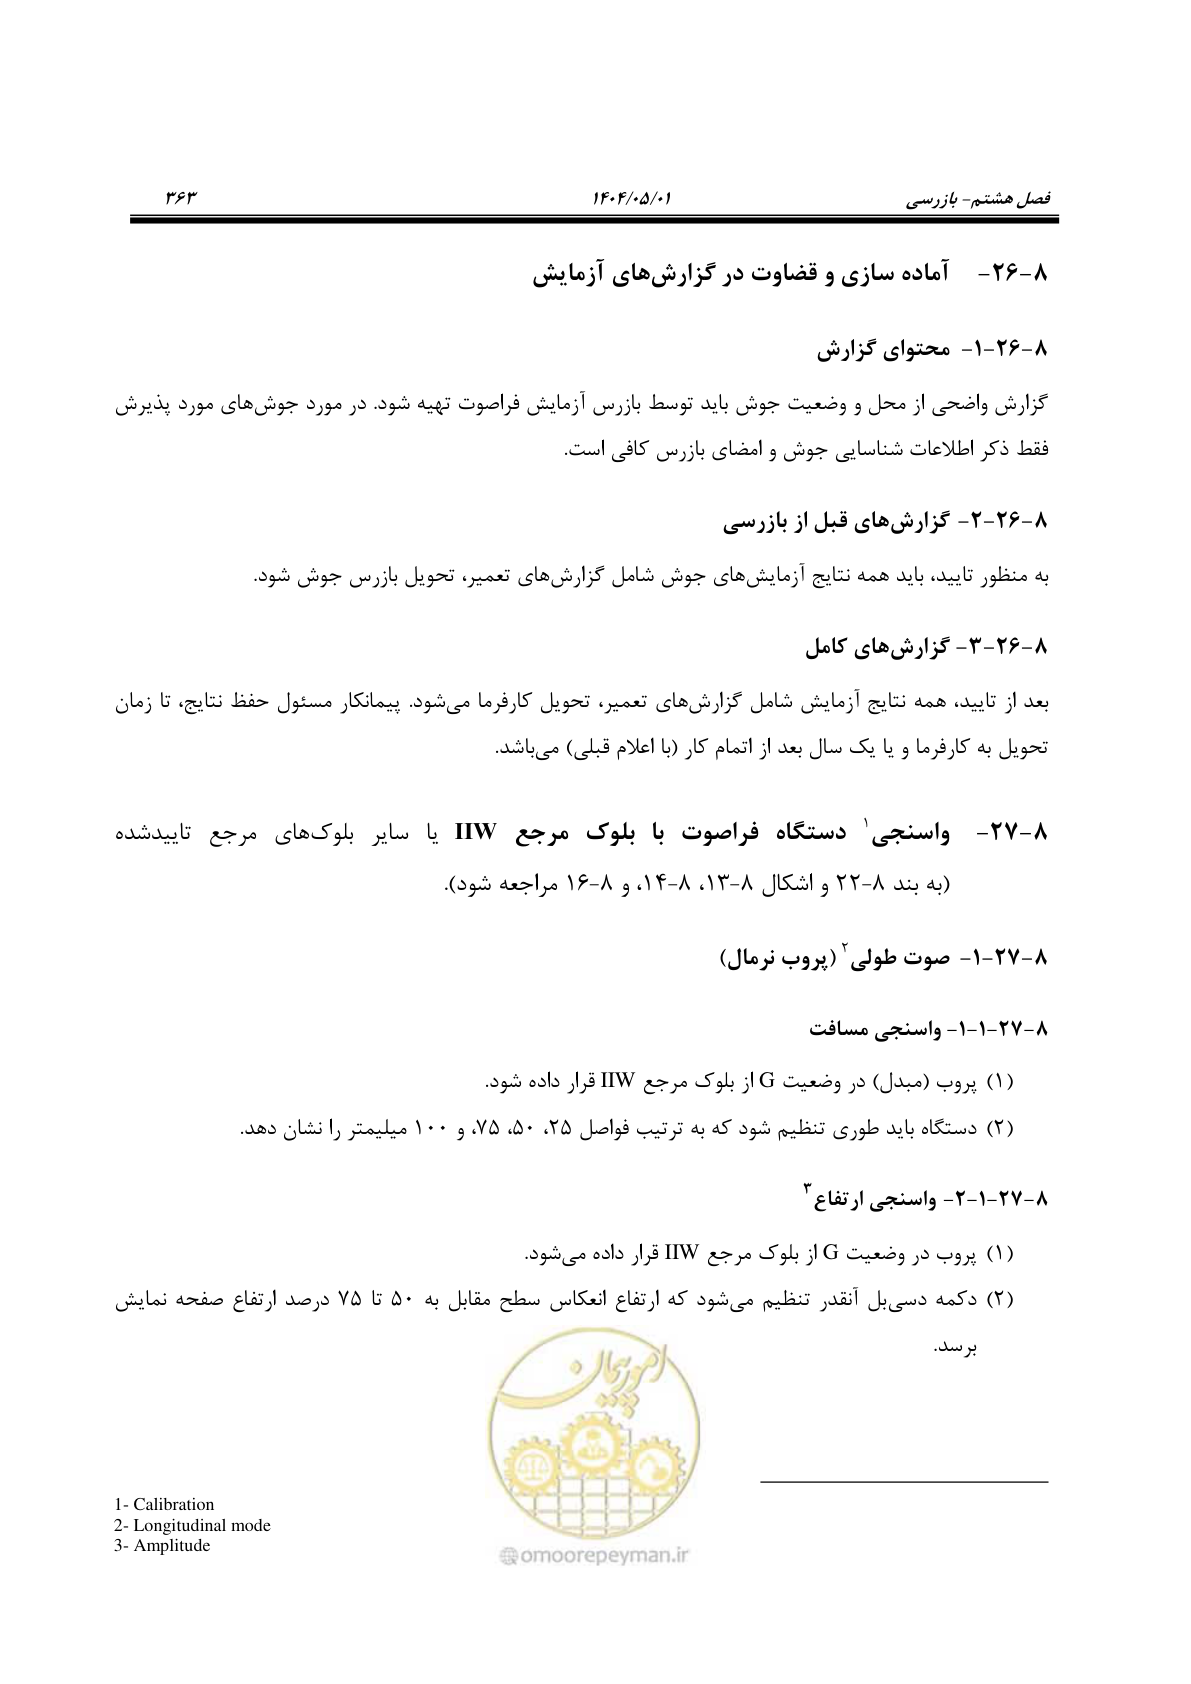 فصل هشتم- بازرسی ۱۴۰۴/۰۵/۰۱ ۳۶۳
۸-۲۶- آماده سازی و قضاوت در گزارش‌های آزمایش
۸-۲۶-۱- محتوای گزارش
گزارش واضحی از محل و وضعیت جوش باید توسط بازرس آزمایش فراصوت تهیه شود. در مورد جوش‌های مورد پذیرش
فقط ذکر اطلاعات شناسایی جوش و امضای بازرس کافی است.
۸-۲۶-۲- گزارش‌های قبل از بازرسی
به منظور تایید، باید همه نتایج آزمایش‌های جوش شامل گزارش‌های تعمیر، تحویل بازرس جوش شود.
۸-۲۶-۳- گزارش‌های کامل
بعد از تایید، همه نتایج آزمایش شامل گزارش‌های تعمیر، تحویل کارفرما می‌شود. پیمانکار مسئول حفظ نتایج، تا زمان
تحویل به کارفرما و یا یک سال بعد از اتمام کار (با اعلام قبلی) می‌باشد.
۸-۲۷- واسنجی۱ دستگاه فراصوت با بلوک مرجع IIW یا سایر بلوک‌های مرجع تاییدشده
(به بند ۸-۲۲ و اشکال ۸-۱۳، ۸-۱۴، و ۸-۱۶ مراجعه شود).
۸-۲۷-۱- صوت طولی۲ (پروب نرمال)
۸-۲۷-۱-۱- واسنجی مسافت
(۱) پروب (مبدل) در وضعیت G از بلوک مرجع IIW قرار داده شود.
(۲) دستگاه باید طوری تنظیم شود که به ترتیب فواصل ۲۵، ۵۰، ۷۵، و ۱۰۰ میلیمتر را نشان دهد.
۸-۲۷-۱-۲- واسنجی ارتفاع۳
(۱) پروب در وضعیت G از بلوک مرجع IIW قرار داده می‌شود.
(۲) دکمه دسی‌بل آنقدر تنظیم می‌شود که ارتفاع انعکاس سطح مقابل به ۵۰ تا ۷۵ درصد ارتفاع صفحه نمایش
برسد.
امور پیمان
1- Calibration
2- Longitudinal mode
3- Amplitude
@omoorepeyman.ir